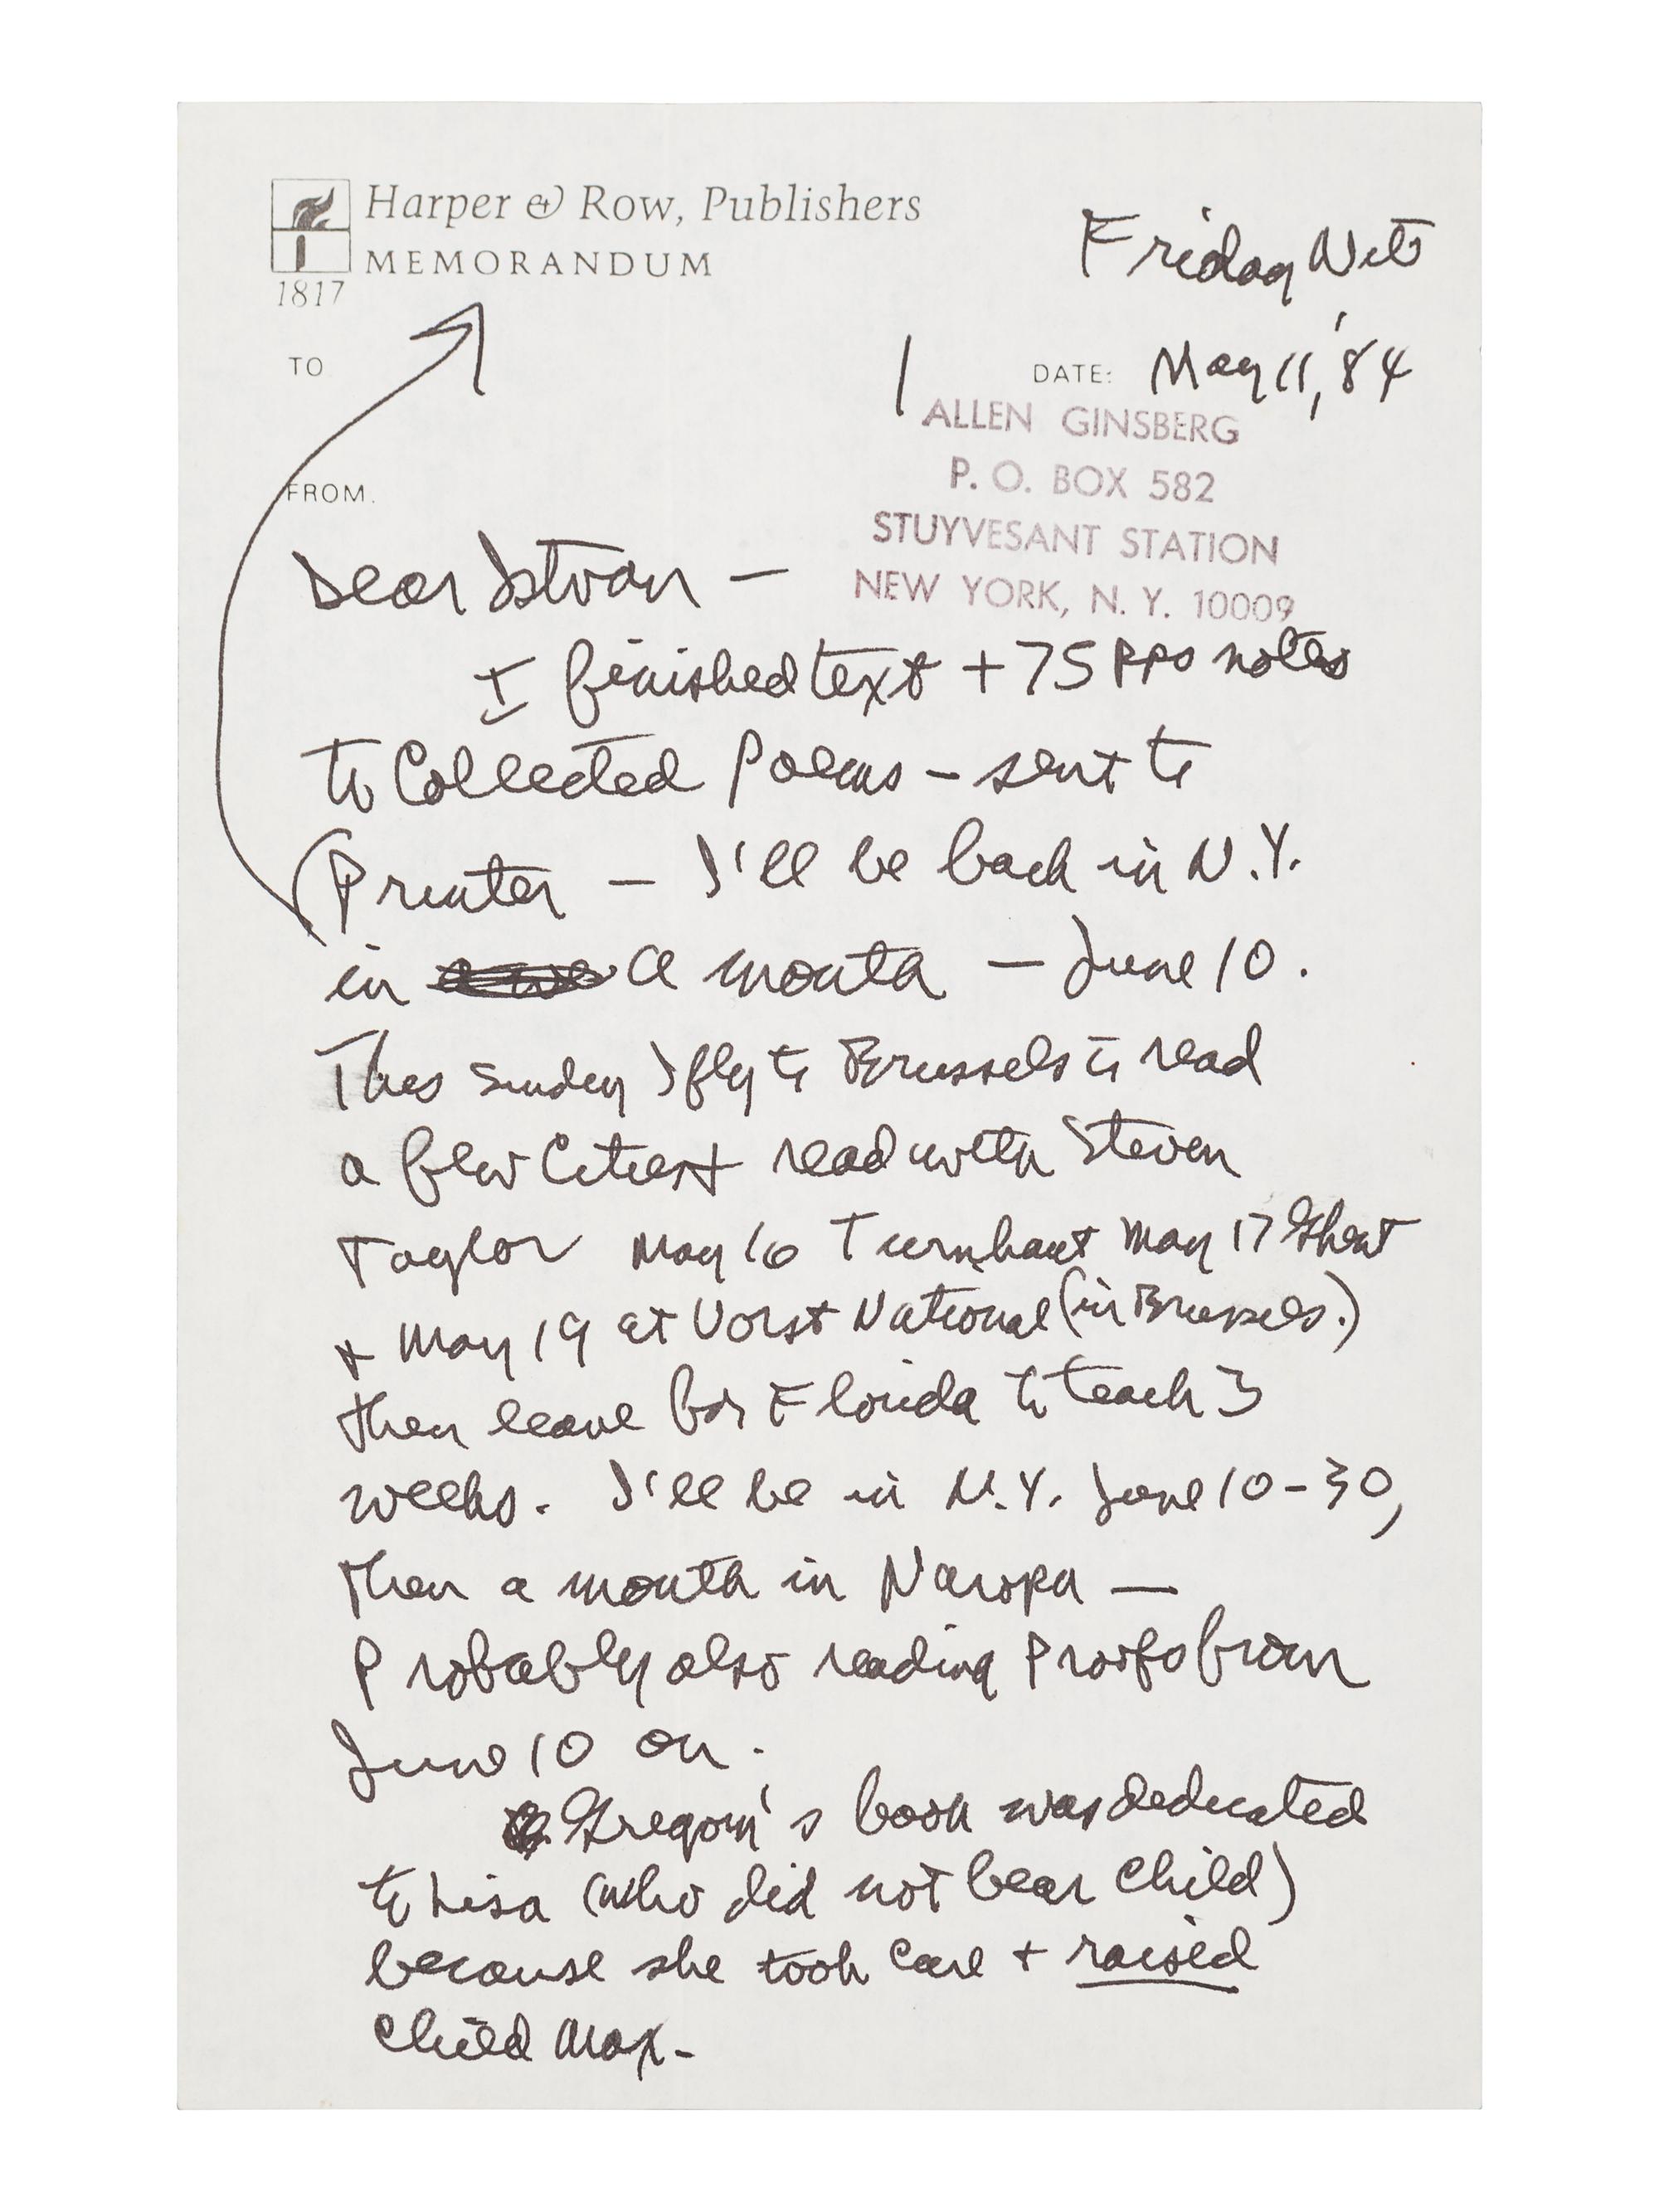 Harper & Row, Publishers
MEMORANDUM
1817
Friday Nite
TO
1
DATE: May 11, '84
ALLEN GINSBERG
P. O. BOX 582
STUYVESANT STATION
NEW YORK, N. Y. 10009
FROM.
Dear Istvan —
I finished text + 75 pps notes
to Collected Poems – sent to
Printer — I'll be back in N.Y.
in a month — June 10.
This Sunday I fly to Brussels to read
a few Cities + read with Steven
Taylor May 16 Turnhaut May 17 Ghent
+ May 19 at Vorst National (in Brussels.)
then leave for Florida to teach 3
weeks. I'll be in N.Y. June 10-30,
then a month in Naropa —
Probably also reading Proofs from
June 10 on.
Gregory's book was dedicated
to Lisa (who did not bear child)
because she took care + raised
child Max-